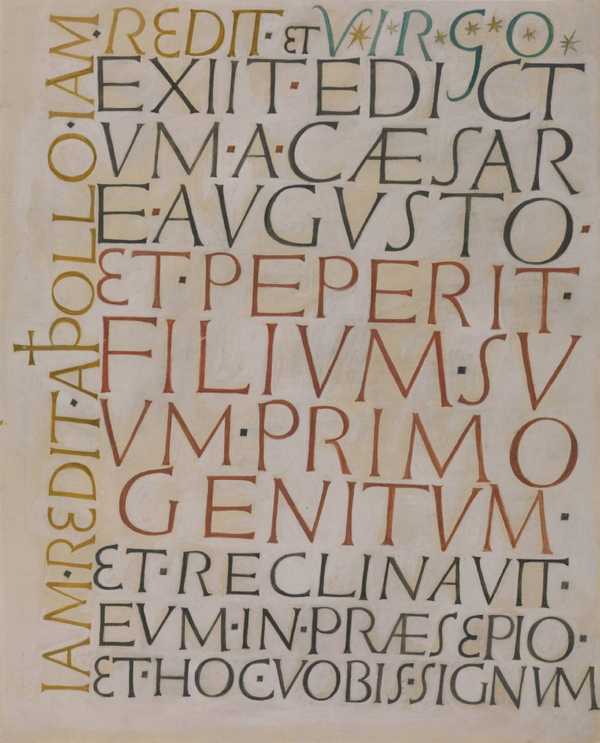 IAM·REDIT·APOLLO·IAM
·REDIT·ET VIRGO
EXIIT·EDICT
VM·A·CÆSAR
E·AVGVSTO·
ET·PEPERIT·
FILIVM·SV
VM·PRIMO
GENITVM·
ET·RECLINAVIT·
EVM·IN·PRÆSEPIO·
ET·HOC·VOBIS·SIGNVM